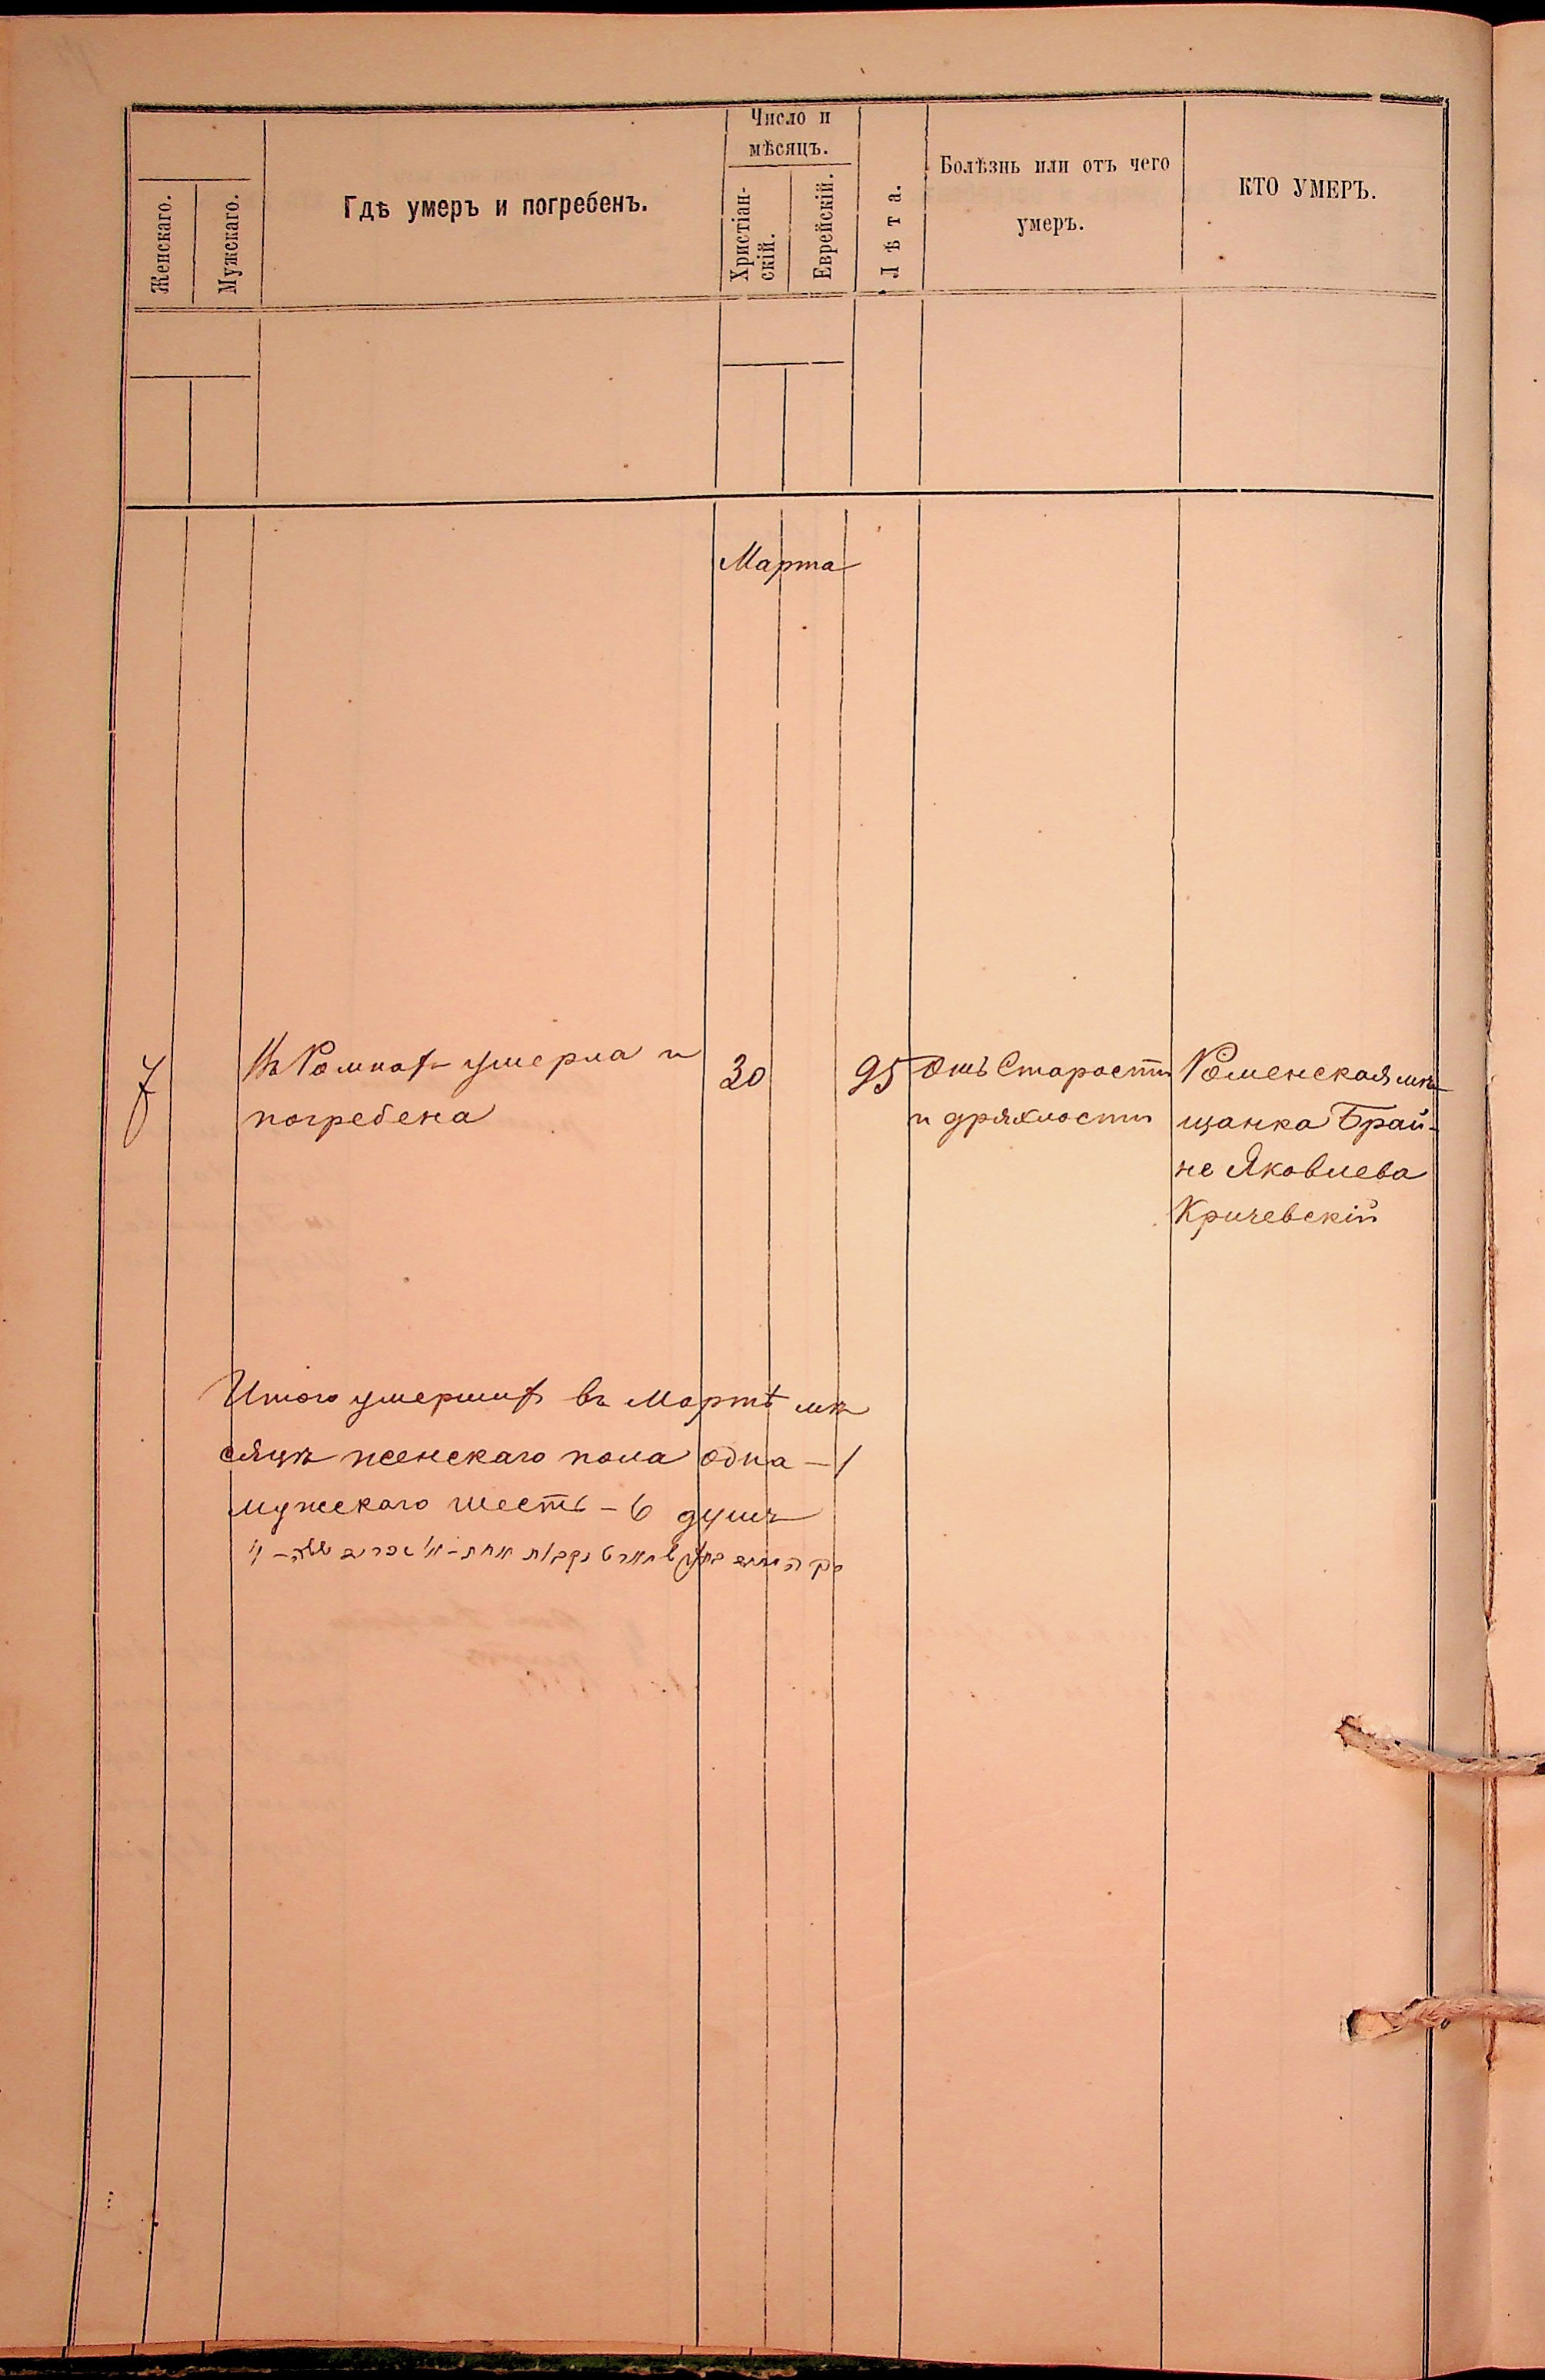 Женскаго.
Мужскаго.
Гдѣ умеръ и погребенъ.
Число и
мѣсяцъ.
Христіан-
скій.
Еврейскій.
Лѣта.
Болѣзнь или отъ чего
умеръ.
КТО УМЕРЪ.
Марта
7
Въ Ромнахъ умерла и
погребена
30
95
Отъ Старости
и дряхлости
Роменская мѣ-
щанка Брай-
не Яковлева
Кричевскій
Итого умершихъ въ Мартѣ мѣ
сяцѣ женскаго пола одна - 1
мужскаго шесть - 6 душъ